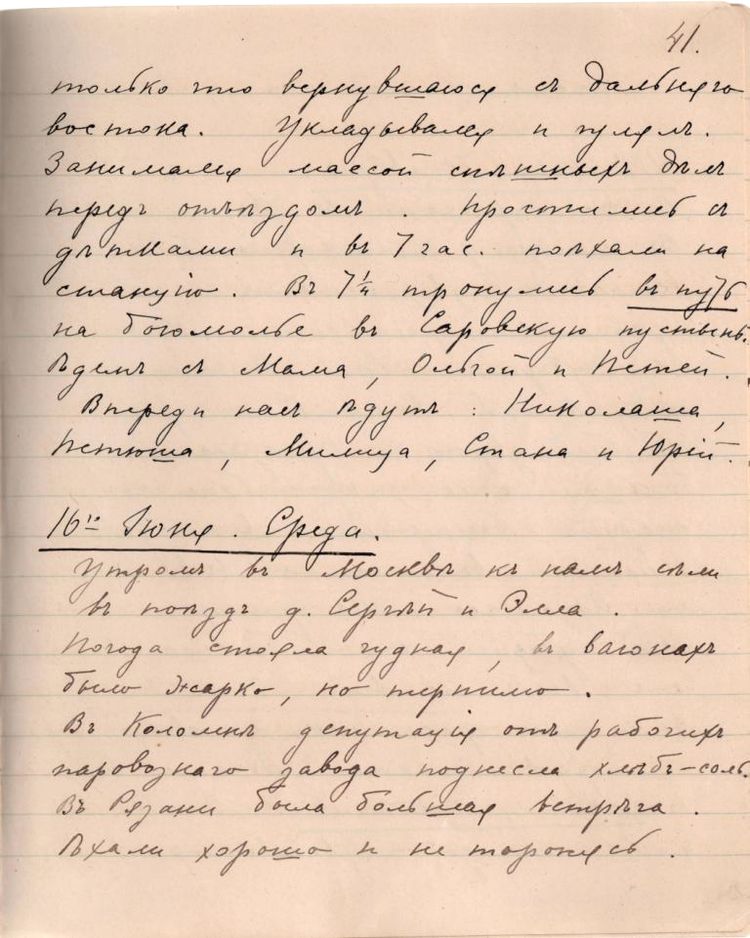 41.
только что вернувшагося съ дальняго
востока. Укладывался и гулялъ.
Занимался массой спѣшныхъ дѣлъ
передъ отъѣздомъ. Простились съ
дѣтками и въ 7 час. поѣхали на
станцію. Въ 7¼ тронулись въ путь
на богомолье въ Саровскую пустынь.
Ѣдемъ съ Мама, Ольгой и Петей.
Впереди насъ ѣдутъ: Николаша,
Петюша, Милица, Стана и Юрій.
16го Іюля. Среда.
Утромъ въ Москвѣ къ намъ сѣли
въ поѣздъ д. Сергѣй и Элла.
Погода стояла чудная, въ вагонахъ
было жарко, но терпимо.
Въ Коломнѣ депутація отъ рабочихъ
паровознаго завода поднесла хлѣбъ-соль.
Въ Рязани была большая встрѣча.
Ѣхали хорошо и не торопясь.